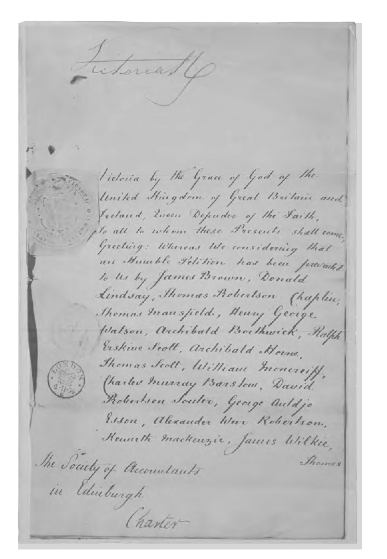 Victoria R
Victoria by the Grace of God of the
United Kingdom of Great Britain and
Ireland, Queen Defender of the Faith,
to all to whom these Presents shall come,
Greeting: Whereas We considering that
an Humble Petition has been presented
to Us by James Brown, Donald
Lindsay, Thomas Robertson Chaplin,
Thomas Mansfield, Henry George
Watson, Archibald Borthwick, Ralph
Erskine Scott, Archibald Horne,
Thomas Scott, William Moncreiff,
Charles Murray Barstow, David
Robertson Souter, George Auldjo
Esson, Alexander Weir Robertson,
Kenneth Mackenzie, James Wilkie,
Thomas
The Society of Accountants
in Edinburgh
Charter